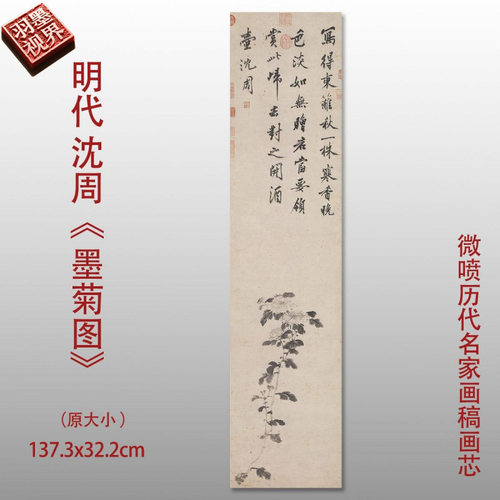 羽墨
视界
明代沈周《墨菊图》
（原大小）
137.3x32.2cm
寫得東籬秋一株寒香晚
色淡如無贈君當要領
賞此歸去對之開酒
壺沈周
微喷历代名家画稿画芯